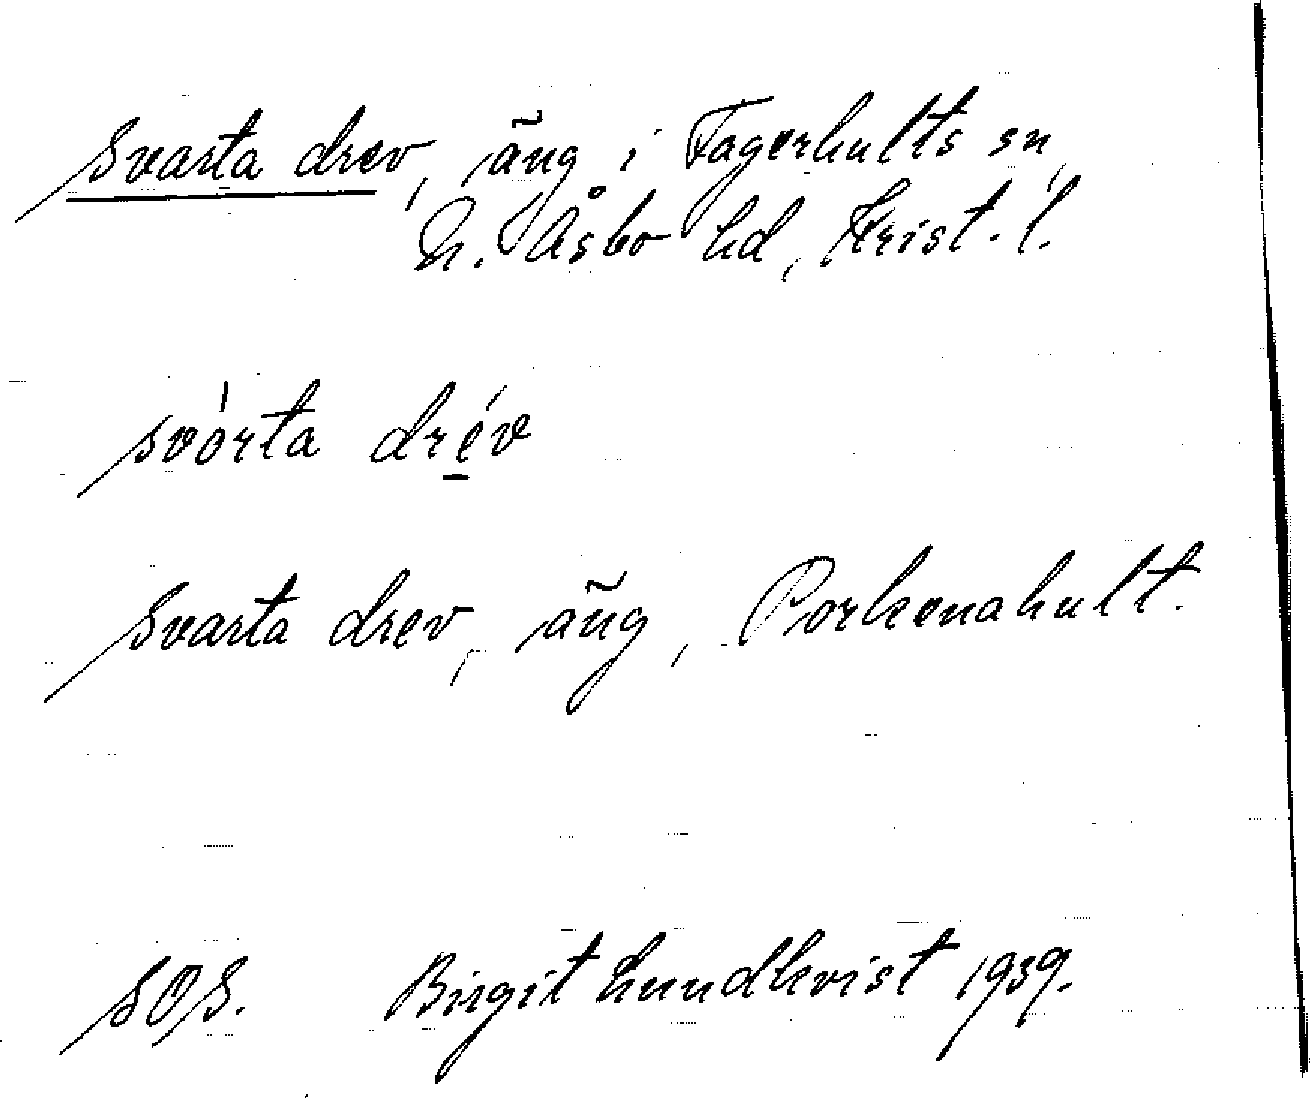 Svarta drev, äng i Fagerhults sn,
N. Åsbo hd, Krist. l.
svórta drév
Svarta drev, äng, Porkenahult.
SOS. Birgit Lundkvist 1939.